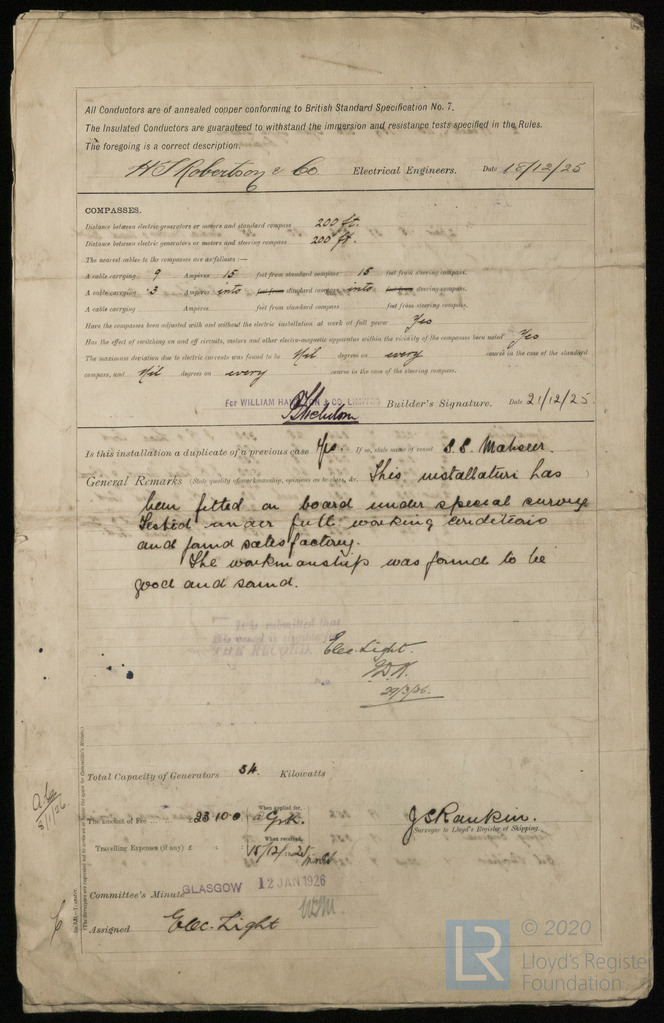 All Conductors are of annealed copper conforming to British Standard Specification No. 7.
The Insulated Conductors are guaranteed to withstand the immersion and resistance tests specified in the Rules.
The foregoing is a correct description.
H S Robertson & Co. Electrical Engineers. Date 18/12/25
COMPASSES.
Distance between electric generators or motors and standard compass 200 ft.
Distance between electric generators or motors and steering compass 200 ft.
The nearest cables to the compasses are as follows:—
A cable carrying 9 Ampères 15 feet from standard compass 15 feet from steering compass.
A cable carrying 3 Ampères into feet from standard compass into feet from steering compass.
A cable carrying Ampères feet from standard compass feet from steering compass.
Have the compasses been adjusted with and without the electric installation at work at full power Yes
Has the effect of switching on and off circuits, motors and other electro-magnetic apparatus within the vicinity of the compasses been noted Yes
The maximum deviation due to electric currents was found to be Nil degrees on every course in the case of the standard
compass, and Nil degrees on every course in the case of the steering compass.
For WILLIAM HAMILTON & CO. LIMITED Builder's Signature. Date 21/12/25.
Is this installation a duplicate of a previous case Yes. If so, state name of vessel S.S. Mahseer.
General Remarks (State quality of workmanship, opinions as to class, &c. This installation has
been fitted on board under special survey
Tested under full working conditions
and found satisfactory.
The workmanship was found to be
good and sound.
It is submitted that
this vessel is
THE RECORD
Elec. Light.
29/3/26.
Total Capacity of Generators 54. Kilowatts
The amount of Fee £ 23.10.0 When applied for,
J S Rankin.
Surveyor to Lloyd's Register of Shipping.
Travelling Expenses (if any) £ When received,
Committee's Minute GLASGOW 12 JAN 1926
Assigned Elec. Light
LR © 2020
Lloyd's Register
Foundation